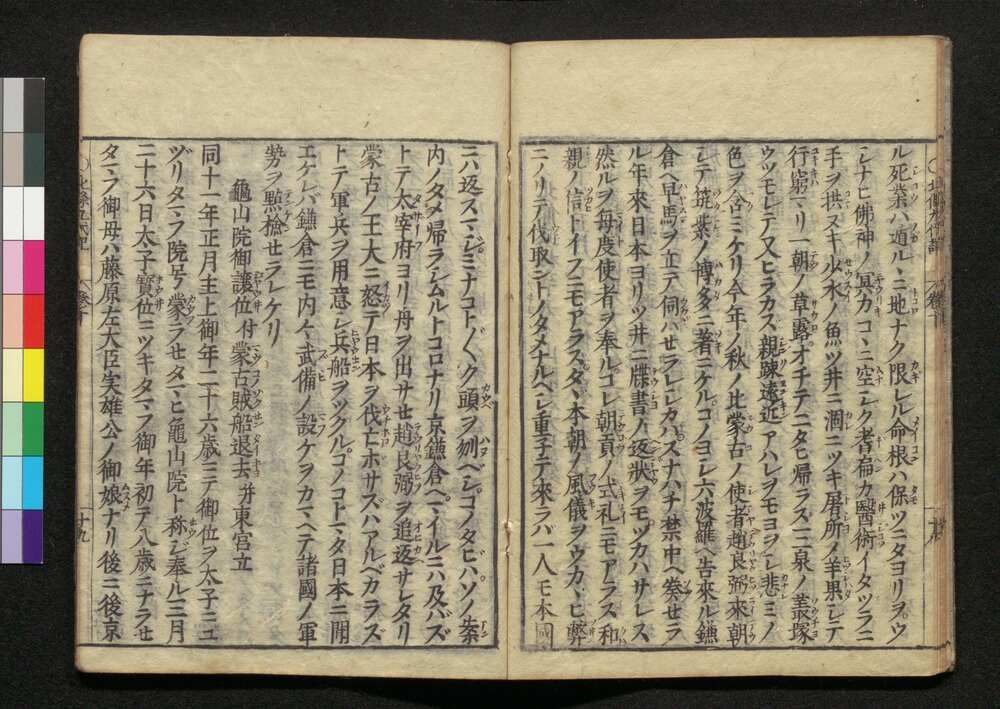 ル死業ハ遁ルヽニ地ナク限レル命根ハ保ツニタヨリヲウ
シナヒ佛神ノ冥カコヽニ空シク耆扁カ醫術イタツラニ
手ヲ拱ヌキ少水ノ魚ツ井ニ涸ニツキ屠所ノ羊果シテ
行窮マリ一朝ノ草露オチテニタヒ帰ラズ三泉ノ叢塚
ウツモレテ又ヒラカス親踈遠近アハレヲモヨヲシ悲ミノ
色ヲ含ミケリ今年ノ秋ノ比蒙古ノ使者趙良弼來朝
シテ筑紫ノ博多ニ著ニケルコノヨシ六波羅ヘ告來ル鎌
倉ヘ早馬ヲ立テ伺ハせラレシカバスナハチ禁中ヘ奏せラ
ル年來日本ヨリツ井ニ牒書ノ返狀ヲモツカハサレス
然ルヲ毎度使者ヲ奉ルコレ朝貢ノ式礼ニモアラス和
親ノ信トイフニモアラスタヽ本朝ノ風儀ヲウカヽヒ弊
ニノリテ伐取ントノタメナルヘシ重子テ來ラバ一人モ本國
ニハ返スマシミナコト〴〵ク頭ヲ刎ヘシコノタヒハソノ案
内ノタメ帰ラシムルトコロナリ京鎌倉ヘマイルニハ及バズ
トテ太宰府ヨリ舟ヲ出サせ趙良弼ヲ追返サレタリ
蒙古ノ王大ニ怒テ日本ヲ伐亡ホサズハアルベカラズ
トテ軍兵ヲ用意シ兵船ヲツクルコノコトマタ日本ニ聞
エケレバ鎌倉ニモ内〻武備ノ設ケヲカマヘテ諸國ノ軍
勢ヲ點檢せラレケリ
龜山院御讓位付蒙古賊船退去并東宮立
同十一年正月主上御年二十六歳ニテ御位ヲ太子ニユ
ヅリタマフ院号蒙ラせタマヒ龜山院ト称ジ奉ル三月
二十六日太子寳位ニツキタマフ御年初テ八歳ニナラせ
タマフ御母ハ藤原左大臣実雄公ノ御娘ナリ後ニ後京
十九